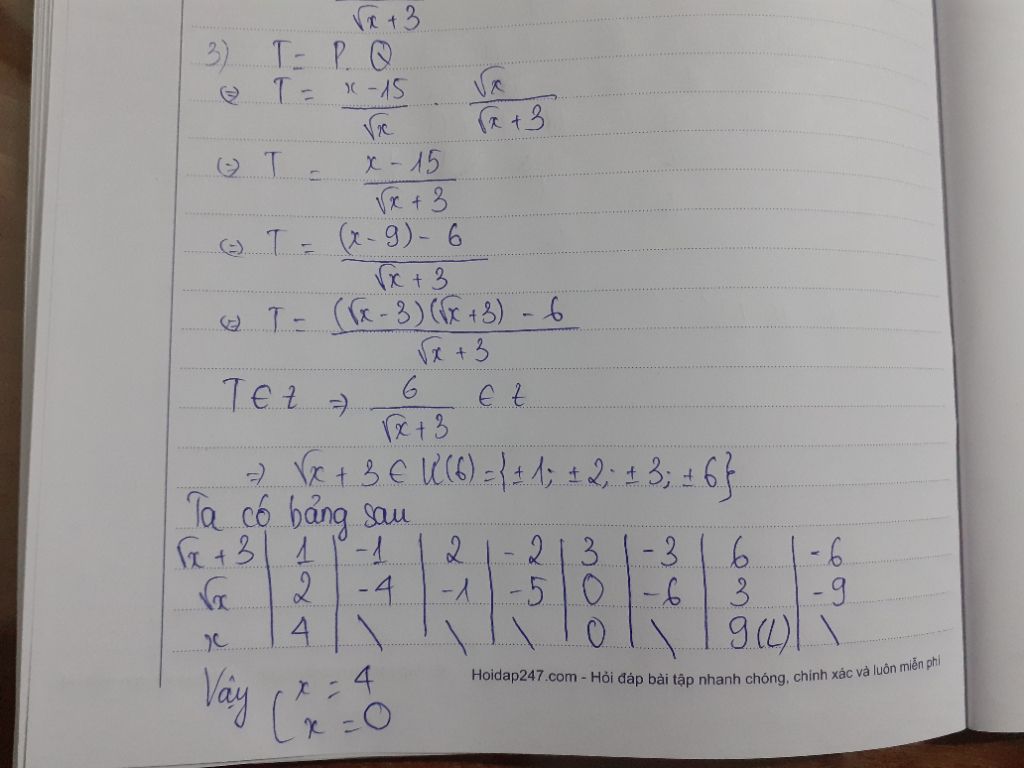 √x + 3
3) T = P. Q
(=) T = x - 15 / √x . √x / √x + 3
(=) T = x - 15 / √x + 3
(=) T = (x - 9) - 6 / √x + 3
(=) T = (√x - 3)(√x + 3) - 6 / √x + 3
T ∈ Z => 6 / √x + 3 ∈ Z
=> √x + 3 ∈ Ư(6) = {±1; ±2; ±3; ±6}
Ta có bảng sau
√x + 3 | 1 | -1 | 2 | -2 | 3 | -3 | 6 | -6
√x | 2 | -4 | -1 | -5 | 0 | -6 | 3 | -9
x | 4 | \ | \ | \ | 0 | \ | 9(L) | \
Vậy [ x = 4
x = 0
Hoidap247.com - Hỏi đáp bài tập nhanh chóng, chính xác và luôn miễn phí